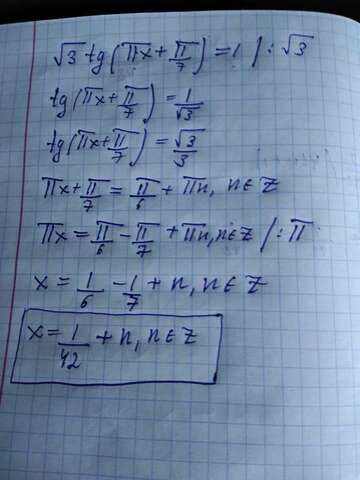 √3 tg(πx + π/7) = 1 / : √3
tg(πx + π/7) = 1/√3
tg(πx + π/7) = √3/3
πx + π/7 = π/6 + πn, n ∈ Z
πx = π/6 - π/7 + πn, n ∈ Z / : π
x = 1/6 - 1/7 + n, n ∈ Z
x = 1/42 + n, n ∈ Z